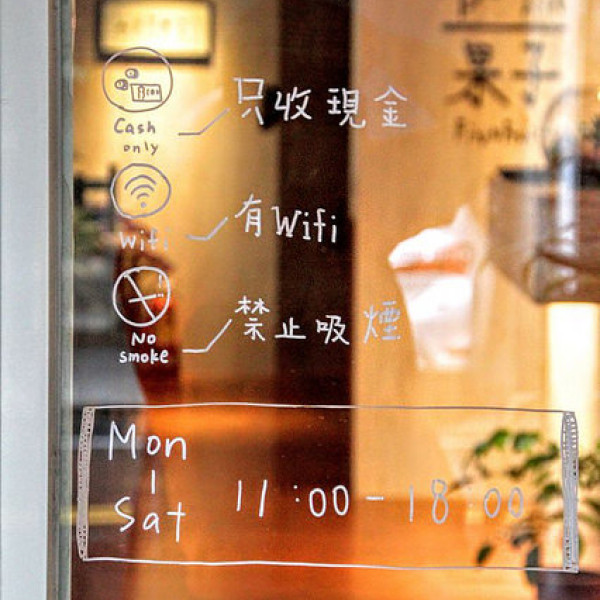 Cash
only
只收現金
Wifi
有Wifi
No
smoke
禁止吸煙
Mon
|
Sat
11:00-18:00
果子